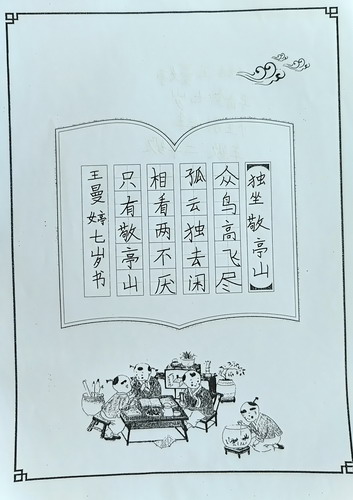 独坐敬亭山
众鸟高飞尽
孤云独去闲
相看两不厌
只有敬亭山
王曼婷七岁书